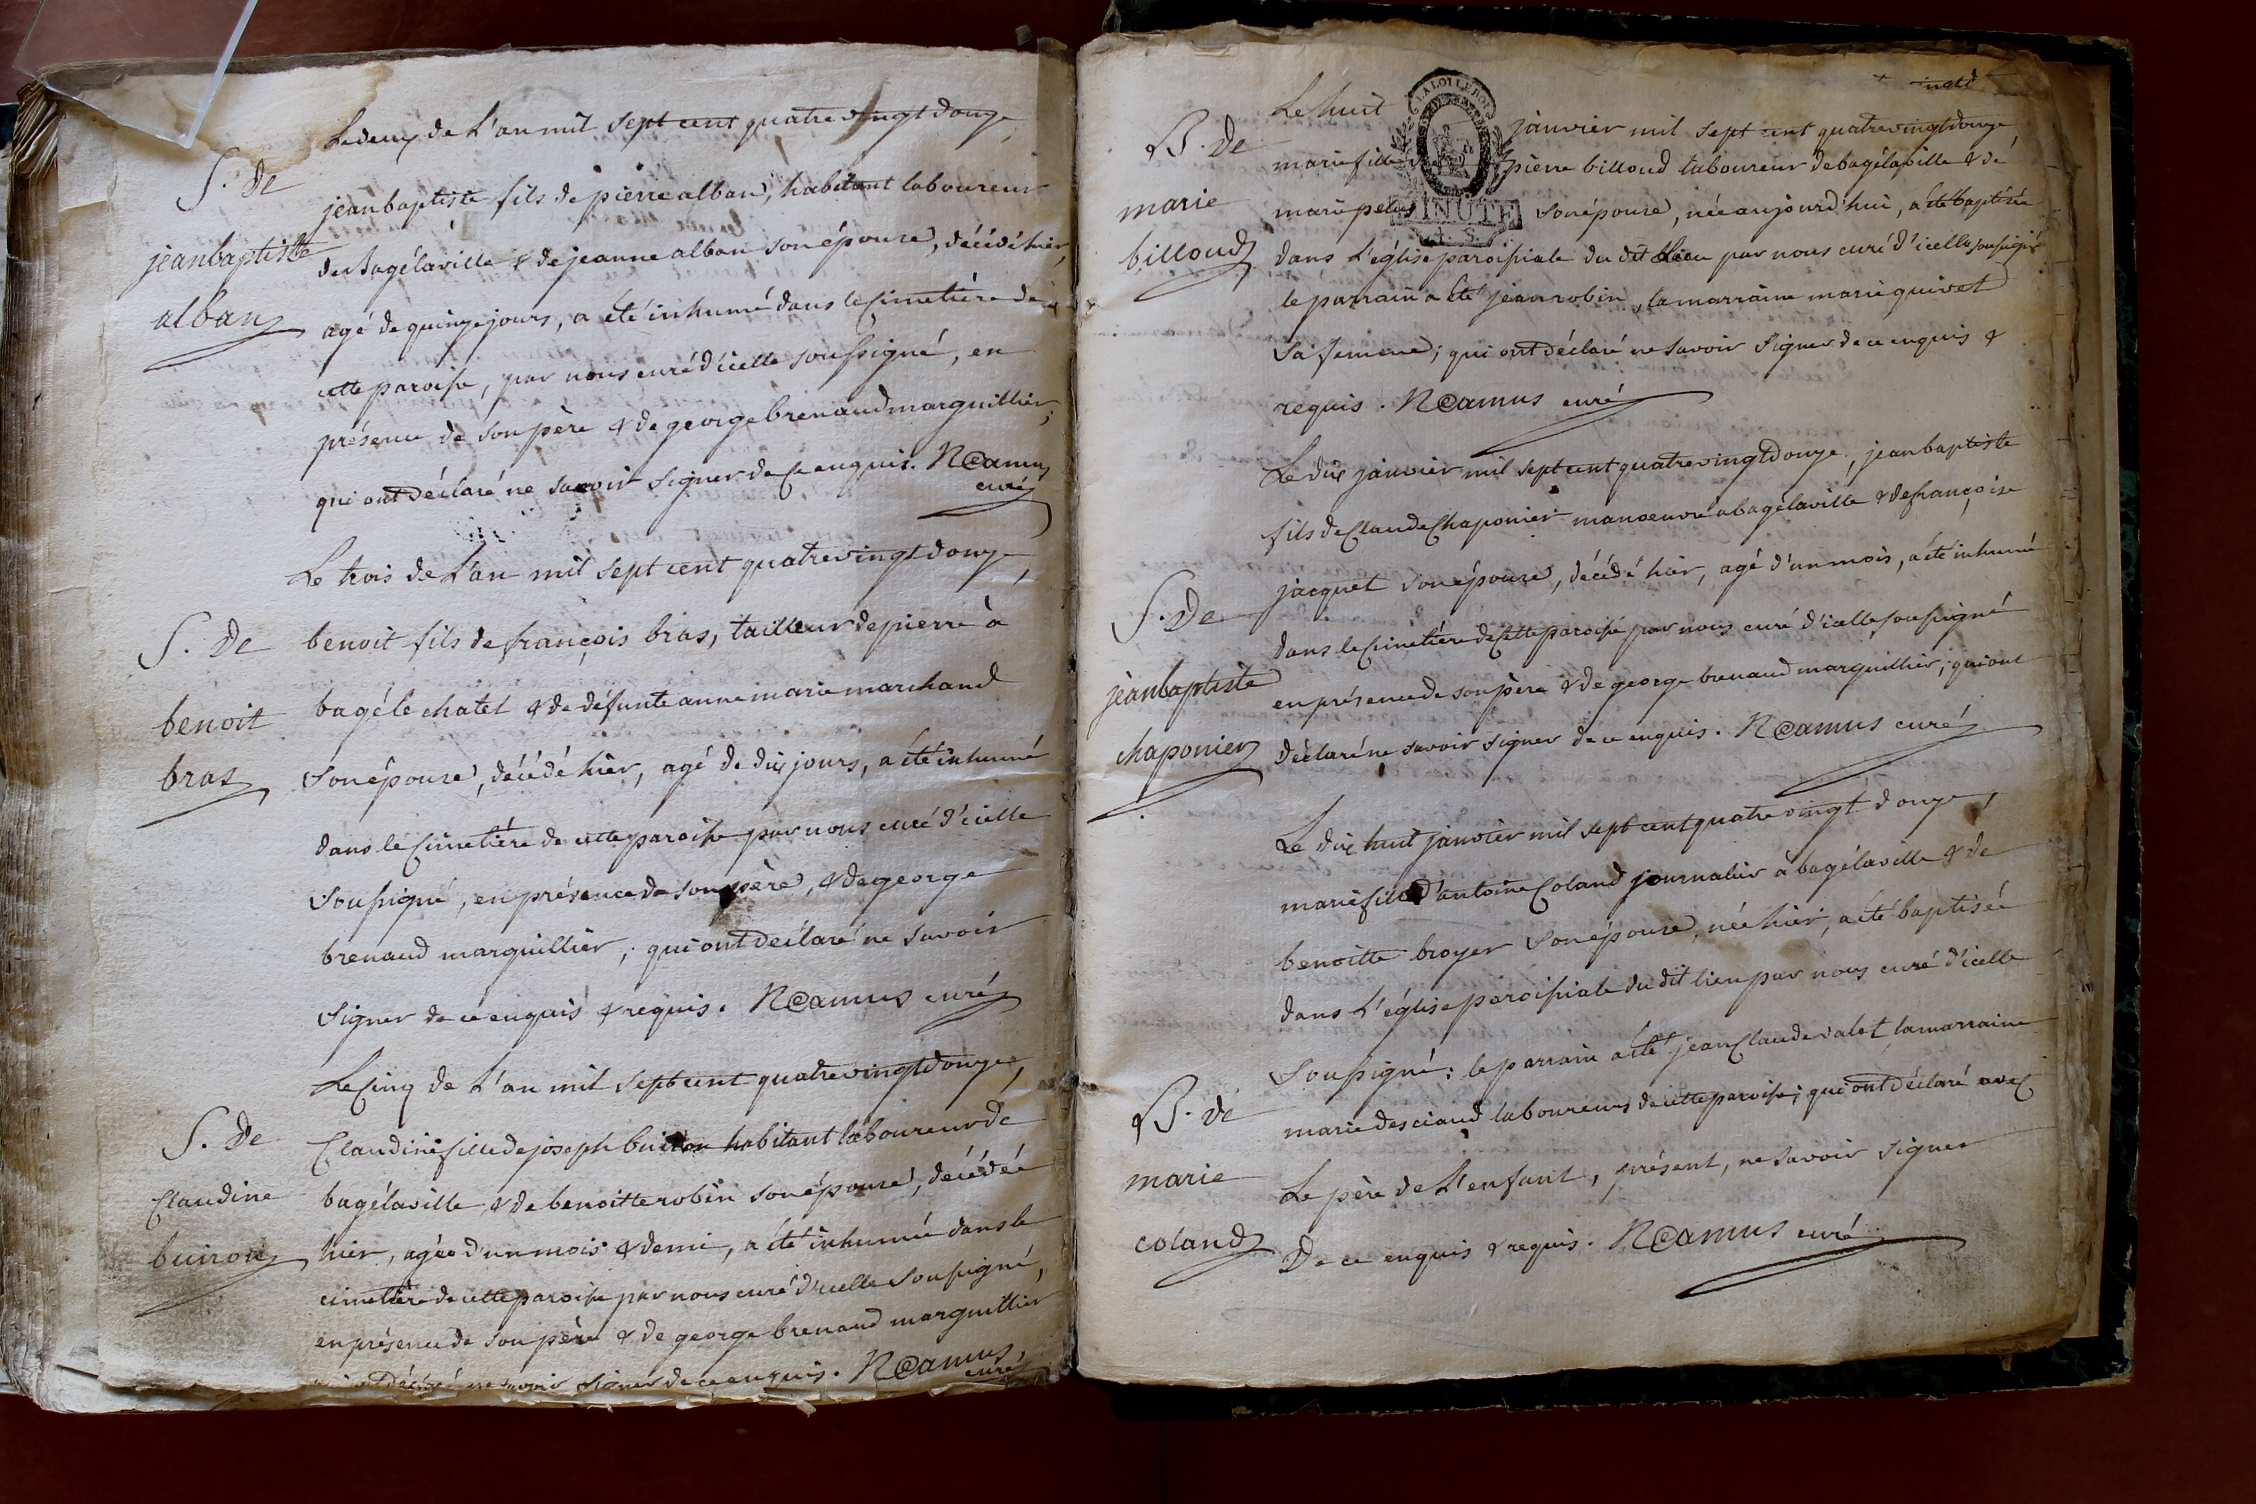 Le deux de L'an mil sept cent quatre vingt douze,
S. de
jeanbaptiste fils de pierre alban, habitant laboureur
jeanbaptiste
de Bagélaville & de jeanne alban son épouse, décédé hier,
alban
agé de quinze jours, a été inhumé dans le Cimetière de
cette paroisse, par nous curé d'icelle soussigné, en
présence de son père & de george brenaud marguillier;
qui ont déclaré ne savoir signer de ce enquis. N Camus
curé
Le trois de L'an mil sept cent quatre vingt douze,
S. De
benoit fils de françois bras, tailleur de pierre à
bagé le chatel & de défunte anne marie marchand
benoit
bras
son épouse, décédé hier, agé de dix jours, a été inhumé
dans le Cimetière de cette paroisse par nous curé d'icelle
soussigné, en présence de son père, & de george
brenaud marguillier; qui ont déclaré ne savoir
signer de ce enquis & requis. N Camus curé
Le Cinq de L'an mil sept cent quatre vingt douze,
S. De
Claudine fille de joseph buiron habitant laboureur de
Claudine
bagélaville & de benoitte robin son épouse, décédée
buiron
hier, agée d'un mois & demi, a été inhumée dans le
cimetière de cette paroisse par nous curé d'icelle soussigné,
en présence de son père & de george brenaud marguillier
déclaré ne savoir signer de ce enquis. N Camus,
curé
Le huit janvier mil sept cent quatre vingt douze,
B. De
marie fille pierre billoud laboureur de bagélaville & de
marie
marie son épouse, née aujourd'hui, a été baptisée
billoud
dans L'église paroissiale du dit Lieu par nous curé d'icelle soussigné
le parrain a été jean robin, la marraine marie guivet
sa femme; qui ont déclaré ne savoir signer de ce enquis &
requis. N Camus curé
LA LOI LE ROI
MINUTE
Le dix janvier mil sept cent quatre vingt douze, jeanbaptiste
fils de Claude Chaponier manoeuvre a bagélaville & de françoise
jacquet son épouse, décédé hier, agé d'un mois, a été inhumé
S. De
dans le Cimetière de Cette paroisse par nous curé d'icelle soussigné
jeanbaptiste
en présence de son père & de george brenaud marguillier; qui ont
chaponier
déclaré ne savoir signer de ce enquis. N Camus curé
Le dix huit janvier mil sept cent quatre vingt douze,
marie fille d'antoine Coland journalier à bagélaville & de
benoitte broyer son épouse, née hier, a été baptisée
dans L'église paroissiale du dit lieu par nous curé d'icelle
soussigné: le parrain a été jean Claude valet, la marraine
B. de
marie desciaud laboureurs de cette paroisse; qui ont déclaré avec
marie
Le père de L'enfant, présent, ne savoir signer
coland
De ce enquis & requis. N Camus curé